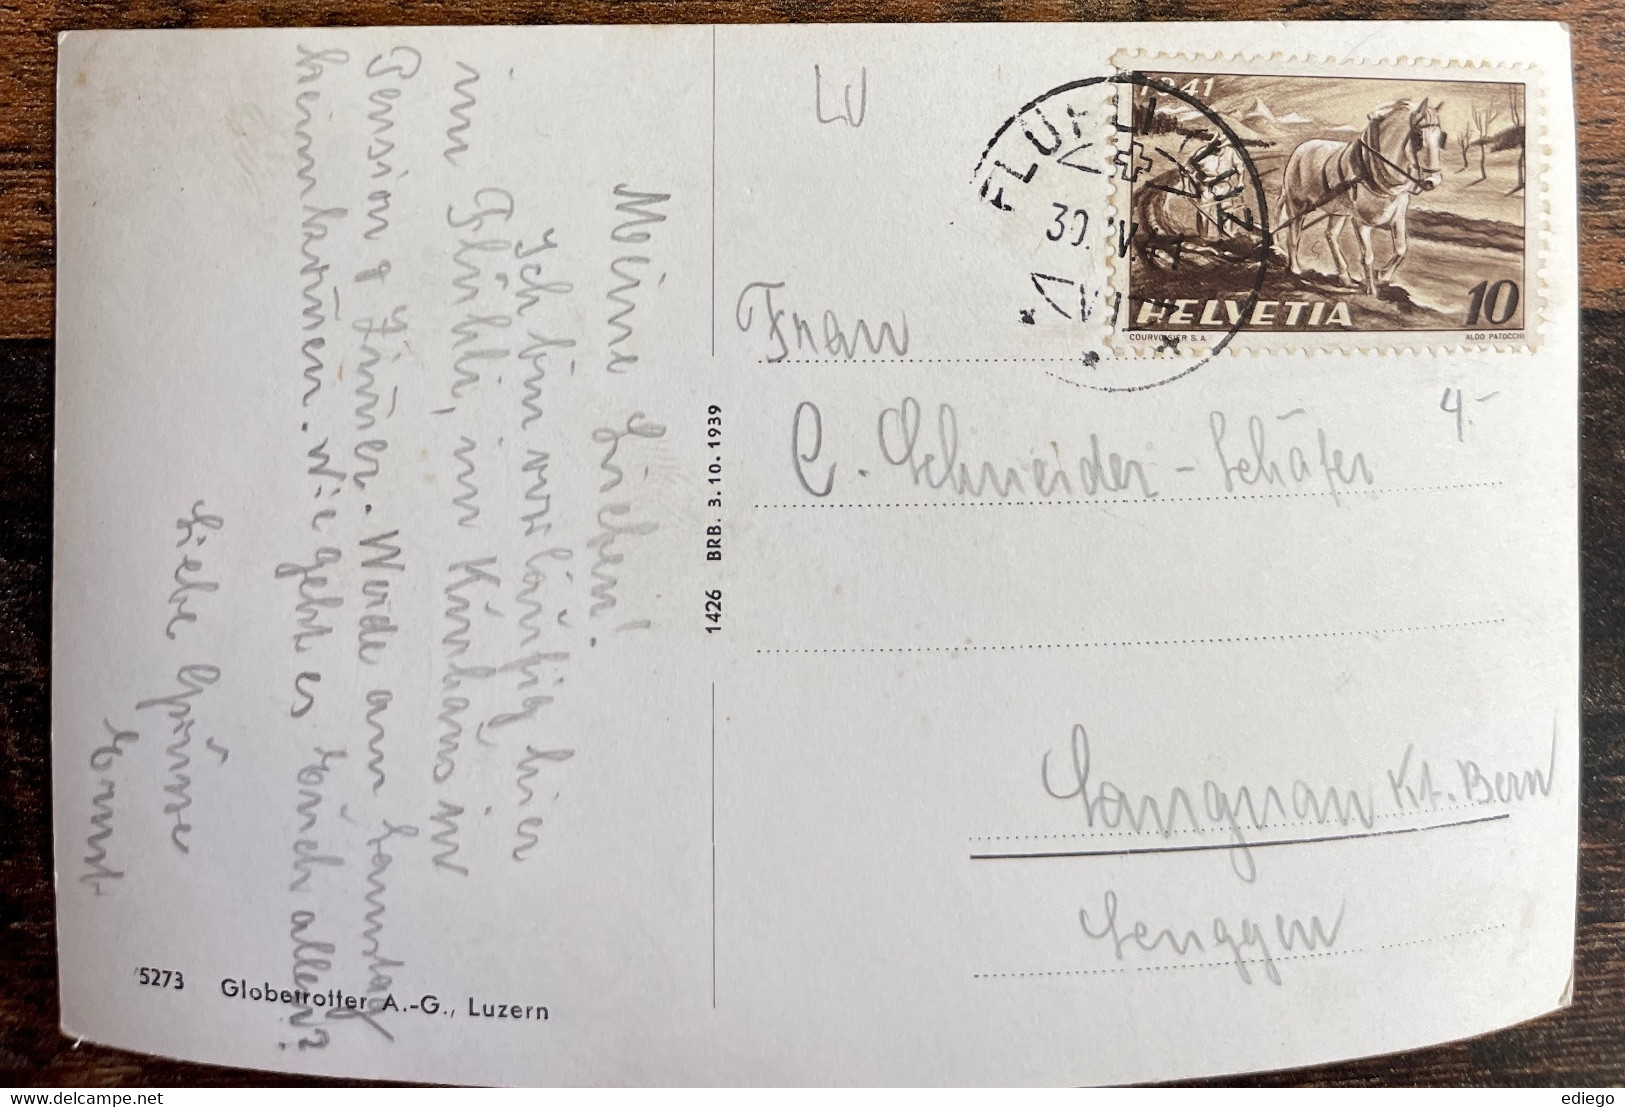 Meine Lieben!
Ich bin vorläufig hier
in Flühli, im Kurhaus in
Pension & Zimmer. Werde am Samstag
heimkommen. Wie geht es Euch allen?
Liebe Grüsse
Ernst
5273 Globetrotter A.-G., Luzern
1426 BRB. 3.10.1939
LU
FLÜHLI (LUZ.)
30. IV. 41
1941
HELVETIA 10
COURVOISIER S.A. ALDO PATOCCHI
4.-
Frau
C. Schneider-Schäfer
Langnau Kt. Bern
Lenggen
ediego